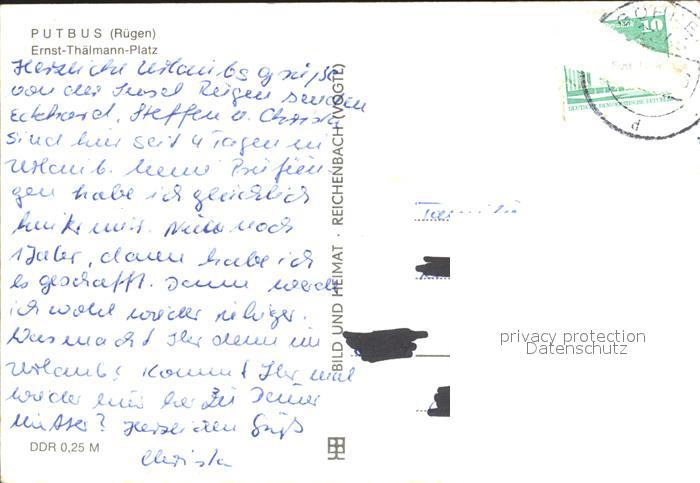 PUTBUS (Rügen)
Ernst-Thälmann-Platz
Herzliche Urlaubsgrüße
von der Insel Rügen senden
Eckhard, Steffen u. Christa
sind hier seit 4 Tagen in
Urlaub. Meine Prüfun-
gen habe ich glücklich
hinter mir. Nur noch
1 Jahr, dann habe ich
es geschafft. Dann werde
ich wohl wieder ruhiger.
Was macht Ihr denn im
Urlaub? Kommt Ihr mal
wieder hier her zu Deiner
Mutter? Herzlichen Gruß
Christa
DDR 0,25 M
BILD UND HEIMAT · REICHENBACH (VOGTL)
Familie
privacy protection
Datenschutz